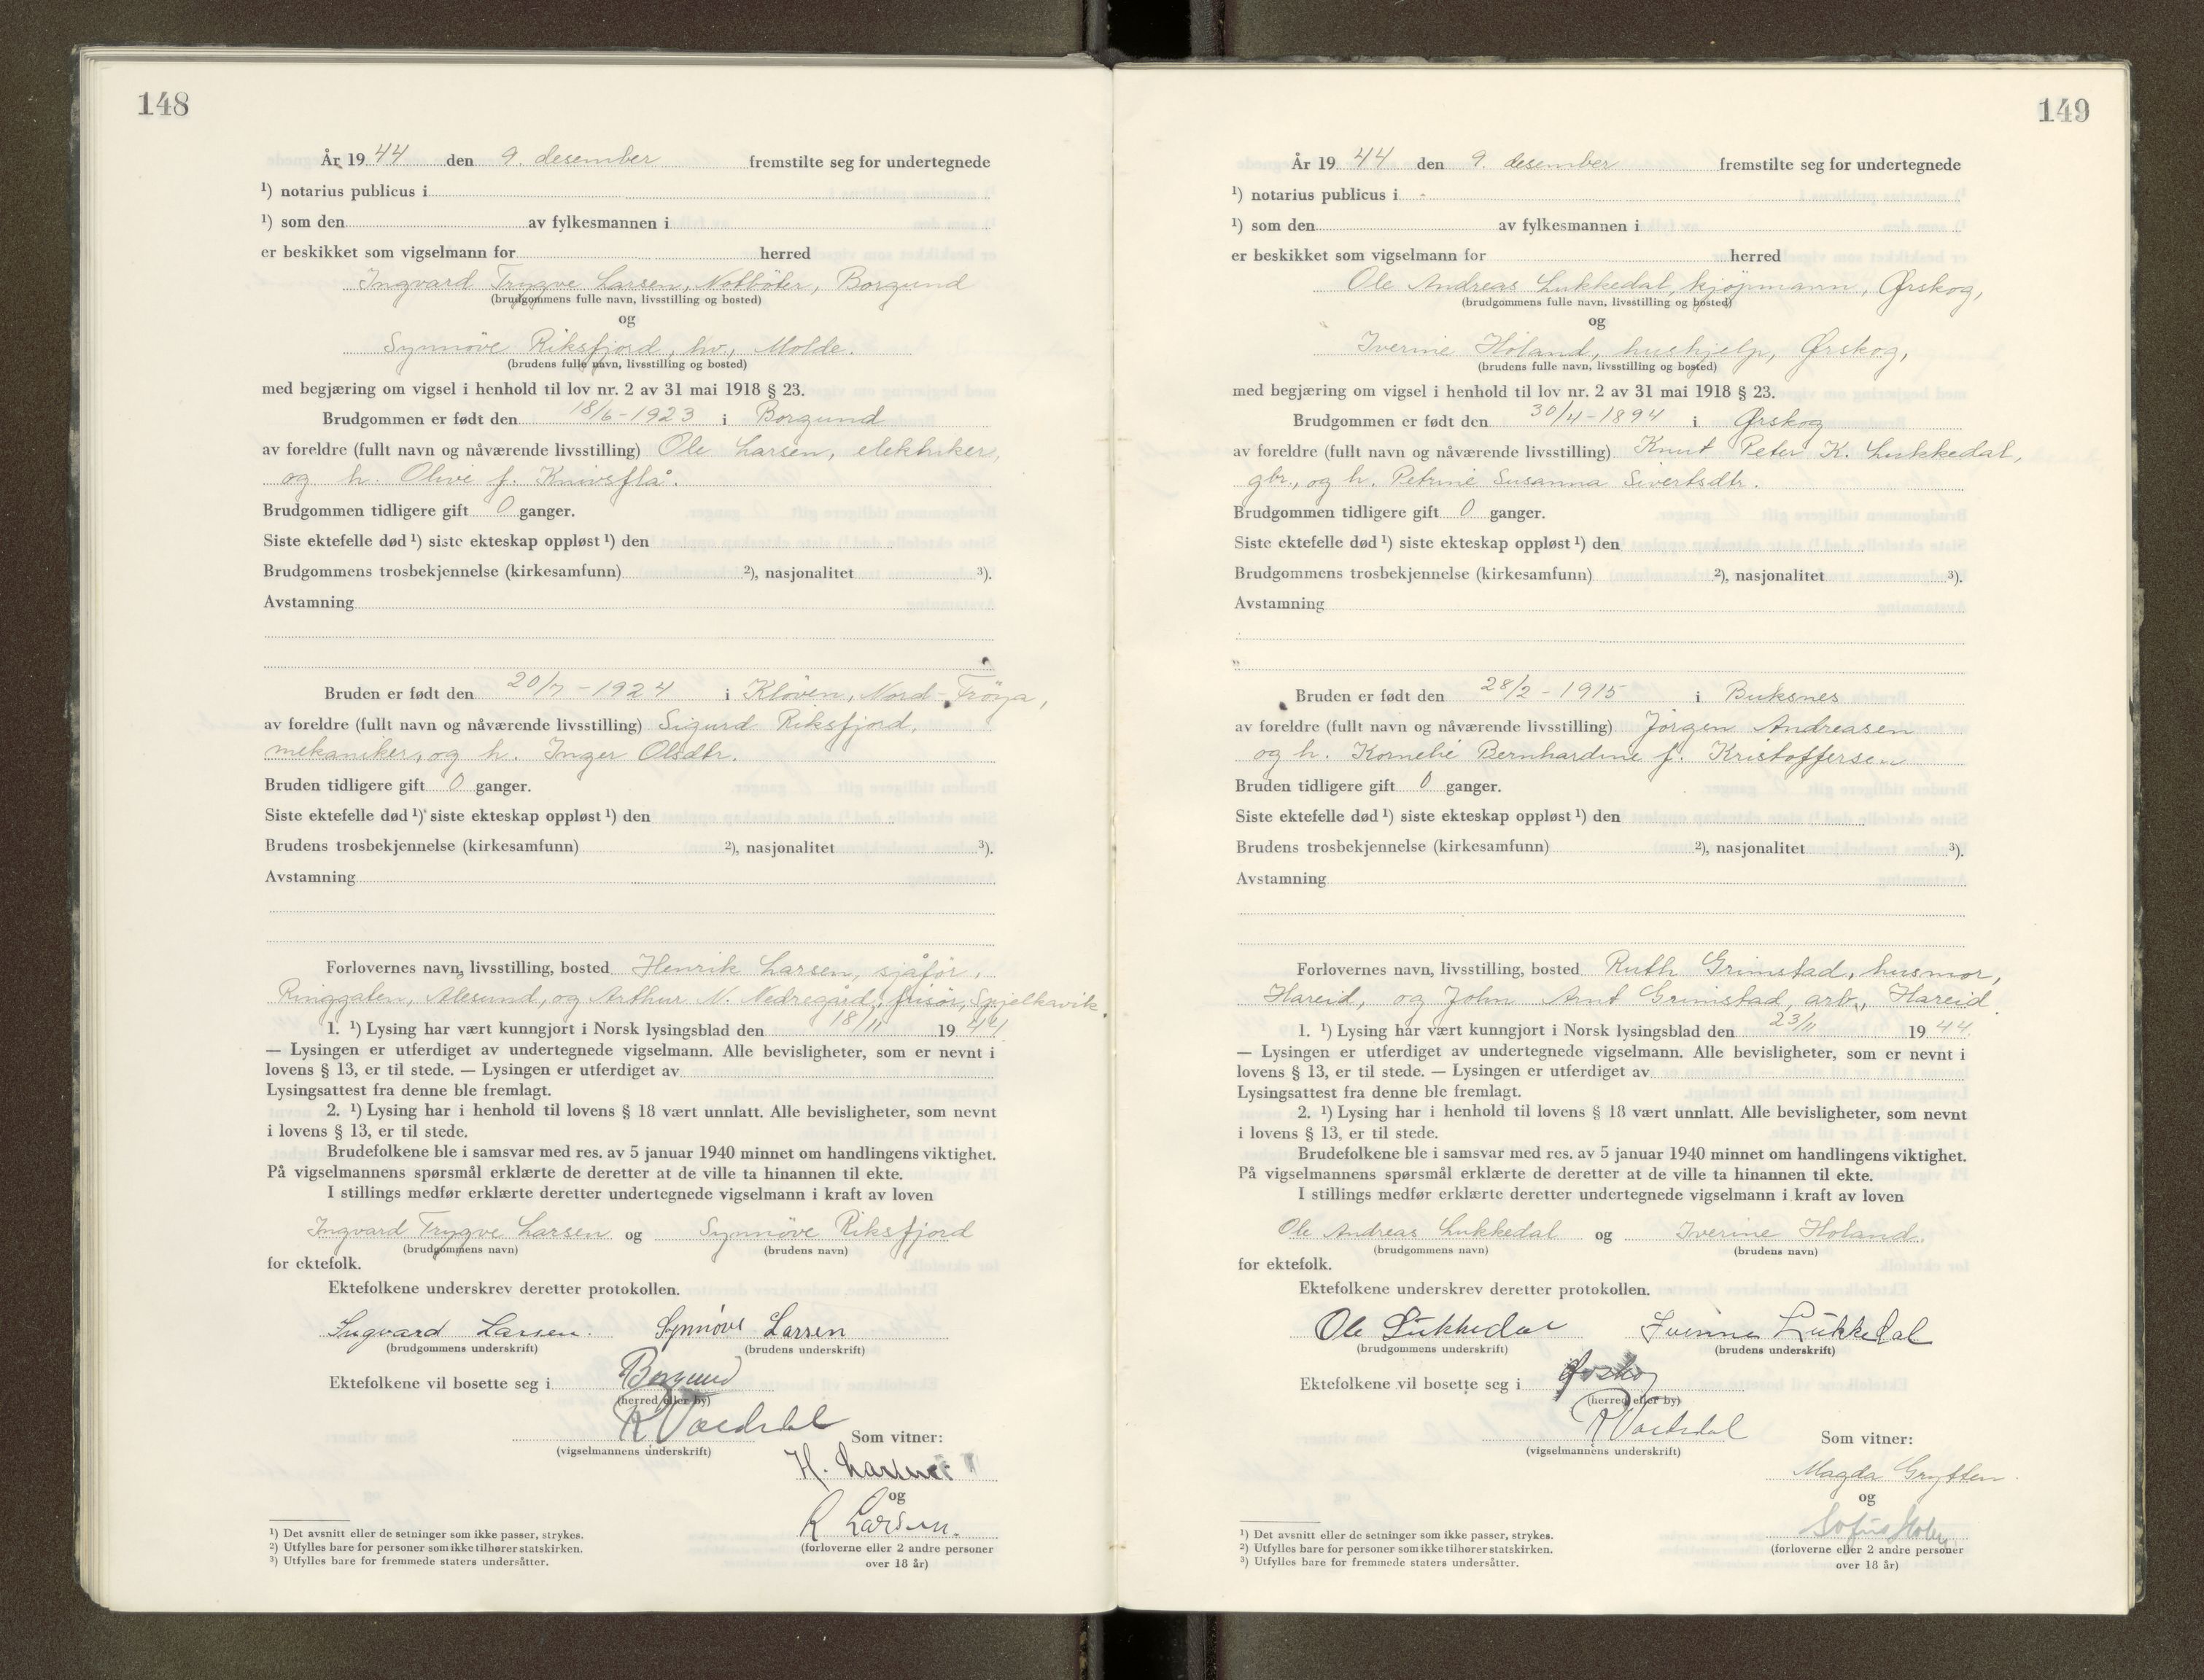 148
År 1944 den 9. desember fremstilte seg for undertegnede
¹) notarius publicus i
¹) som den av fylkesmannen i
er beskikket som vigselmann for herred
Ingvard Trygve Larsen, Notbøter, Borgund
(brudgommens fulle navn, livsstilling og bosted)
og
Synnöve Riksfjord, hv., Molde.
(brudens fulle navn, livsstilling og bosted)
med begjæring om vigsel i henhold til lov nr. 2 av 31 mai 1918 § 23.
Brudgommen er født den 18/6-1923 i Borgund
av foreldre (fullt navn og nåværende livsstilling) Ole Larsen, elektriker,
og h. Olive f. Knivsflå.
Brudgommen tidligere gift 0 ganger.
Siste ektefelle død ¹) siste ekteskap oppløst ¹) den
Brudgommens trosbekjennelse (kirkesamfunn) ²), nasjonalitet ³).
Avstamning
Bruden er født den 20/7-1924 i Klöven, Nord-Fröya,
av foreldre (fullt navn og nåværende livsstilling) Sigurd Riksfjord,
mekaniker, og h. Inger Olsdtr.
Bruden tidligere gift 0 ganger.
Siste ektefelle død ¹) siste ekteskap oppløst ¹) den
Brudens trosbekjennelse (kirkesamfunn) ²), nasjonalitet ³).
Avstamning
Forlovernes navn, livsstilling, bosted Henrik Larsen, sjåför,
Ringgaten, Ålesund, og Arthur N. Nedregård, frisør, Spjelkavik.
1. ¹) Lysing har vært kunngjort i Norsk lysingsblad den 18/11 1944
— Lysingen er utferdiget av undertegnede vigselmann. Alle bevisligheter, som er nevnt i
lovens § 13, er til stede. — Lysingen er utferdiget av
Lysingsattest fra denne ble fremlagt.
2. ¹) Lysing har i henhold til lovens § 18 vært unnlatt. Alle bevisligheter, som nevnt
i lovens § 13, er til stede.
Brudefolkene ble i samsvar med res. av 5 januar 1940 minnet om handlingens viktighet.
På vigselmannens spørsmål erklærte de deretter at de ville ta hinannen til ekte.
I stillings medfør erklærte deretter undertegnede vigselmann i kraft av loven
Ingvard Trygve Larsen og Synnöve Riksfjord
(brudgommens navn) (brudens navn)
for ektefolk.
Ektefolkene underskrev deretter protokollen.
Ingvard Larsen. Synnöve Larsen
(brudgommens underskrift) (brudens underskrift)
Ektefolkene vil bosette seg i Borgund
(herred eller by)
(vigselmannens underskrift) Som vitner:
H. Larsen
og
R Larsen.
(forloverne eller 2 andre personer
over 18 år)
¹) Det avsnitt eller de setninger som ikke passer, strykes.
²) Utfylles bare for personer som ikke tilhører statskirken.
³) Utfylles bare for fremmede staters undersåtter.
149
År 1944 den 9. desember fremstilte seg for undertegnede
¹) notarius publicus i
¹) som den av fylkesmannen i
er beskikket som vigselmann for herred
Ole Andreas Lukkedal, kjøpmann, Ørskog,
(brudgommens fulle navn, livsstilling og bosted)
og
Iverine Holand, hushjelp, Ørskog,
(brudens fulle navn, livsstilling og bosted)
med begjæring om vigsel i henhold til lov nr. 2 av 31 mai 1918 § 23.
Brudgommen er født den 30/4-1894 i Ørskog
av foreldre (fullt navn og nåværende livsstilling) Knut Peter K. Lukkedal,
gbr., og h. Petrine Susanna Sivertsdtr.
Brudgommen tidligere gift 0 ganger.
Siste ektefelle død ¹) siste ekteskap oppløst ¹) den
Brudgommens trosbekjennelse (kirkesamfunn) ²), nasjonalitet ³).
Avstamning
Bruden er født den 28/2-1915 i Buksnes
av foreldre (fullt navn og nåværende livsstilling) Jörgen Andreasen
og h. Kornelie Bernhardine f. Kristoffersen
Bruden tidligere gift 0 ganger.
Siste ektefelle død ¹) siste ekteskap oppløst ¹) den
Brudens trosbekjennelse (kirkesamfunn) ²), nasjonalitet ³).
Avstamning
Forlovernes navn, livsstilling, bosted Ruth Grimstad, husmor,
Hareid, og John Arnt Grimstad, arb., Hareid.
1. ¹) Lysing har vært kunngjort i Norsk lysingsblad den 23/11 1944
— Lysingen er utferdiget av undertegnede vigselmann. Alle bevisligheter, som er nevnt i
lovens § 13, er til stede. — Lysingen er utferdiget av
Lysingsattest fra denne ble fremlagt.
2. ¹) Lysing har i henhold til lovens § 18 vært unnlatt. Alle bevisligheter, som nevnt
i lovens § 13, er til stede.
Brudefolkene ble i samsvar med res. av 5 januar 1940 minnet om handlingens viktighet.
På vigselmannens spørsmål erklærte de deretter at de ville ta hinannen til ekte.
I stillings medfør erklærte deretter undertegnede vigselmann i kraft av loven
Ole Andreas Lukkedal og Iverine Holand.
(brudgommens navn) (brudens navn)
for ektefolk.
Ektefolkene underskrev deretter protokollen.
Ole Lukkedal Iverine Lukkedal
(brudgommens underskrift) (brudens underskrift)
Ektefolkene vil bosette seg i Ørskog
(herred eller by)
(vigselmannens underskrift) Som vitner:
Magda Grytten
og
(forloverne eller 2 andre personer
over 18 år)
¹) Det avsnitt eller de setninger som ikke passer, strykes.
²) Utfylles bare for personer som ikke tilhører statskirken.
³) Utfylles bare for fremmede staters undersåtter.